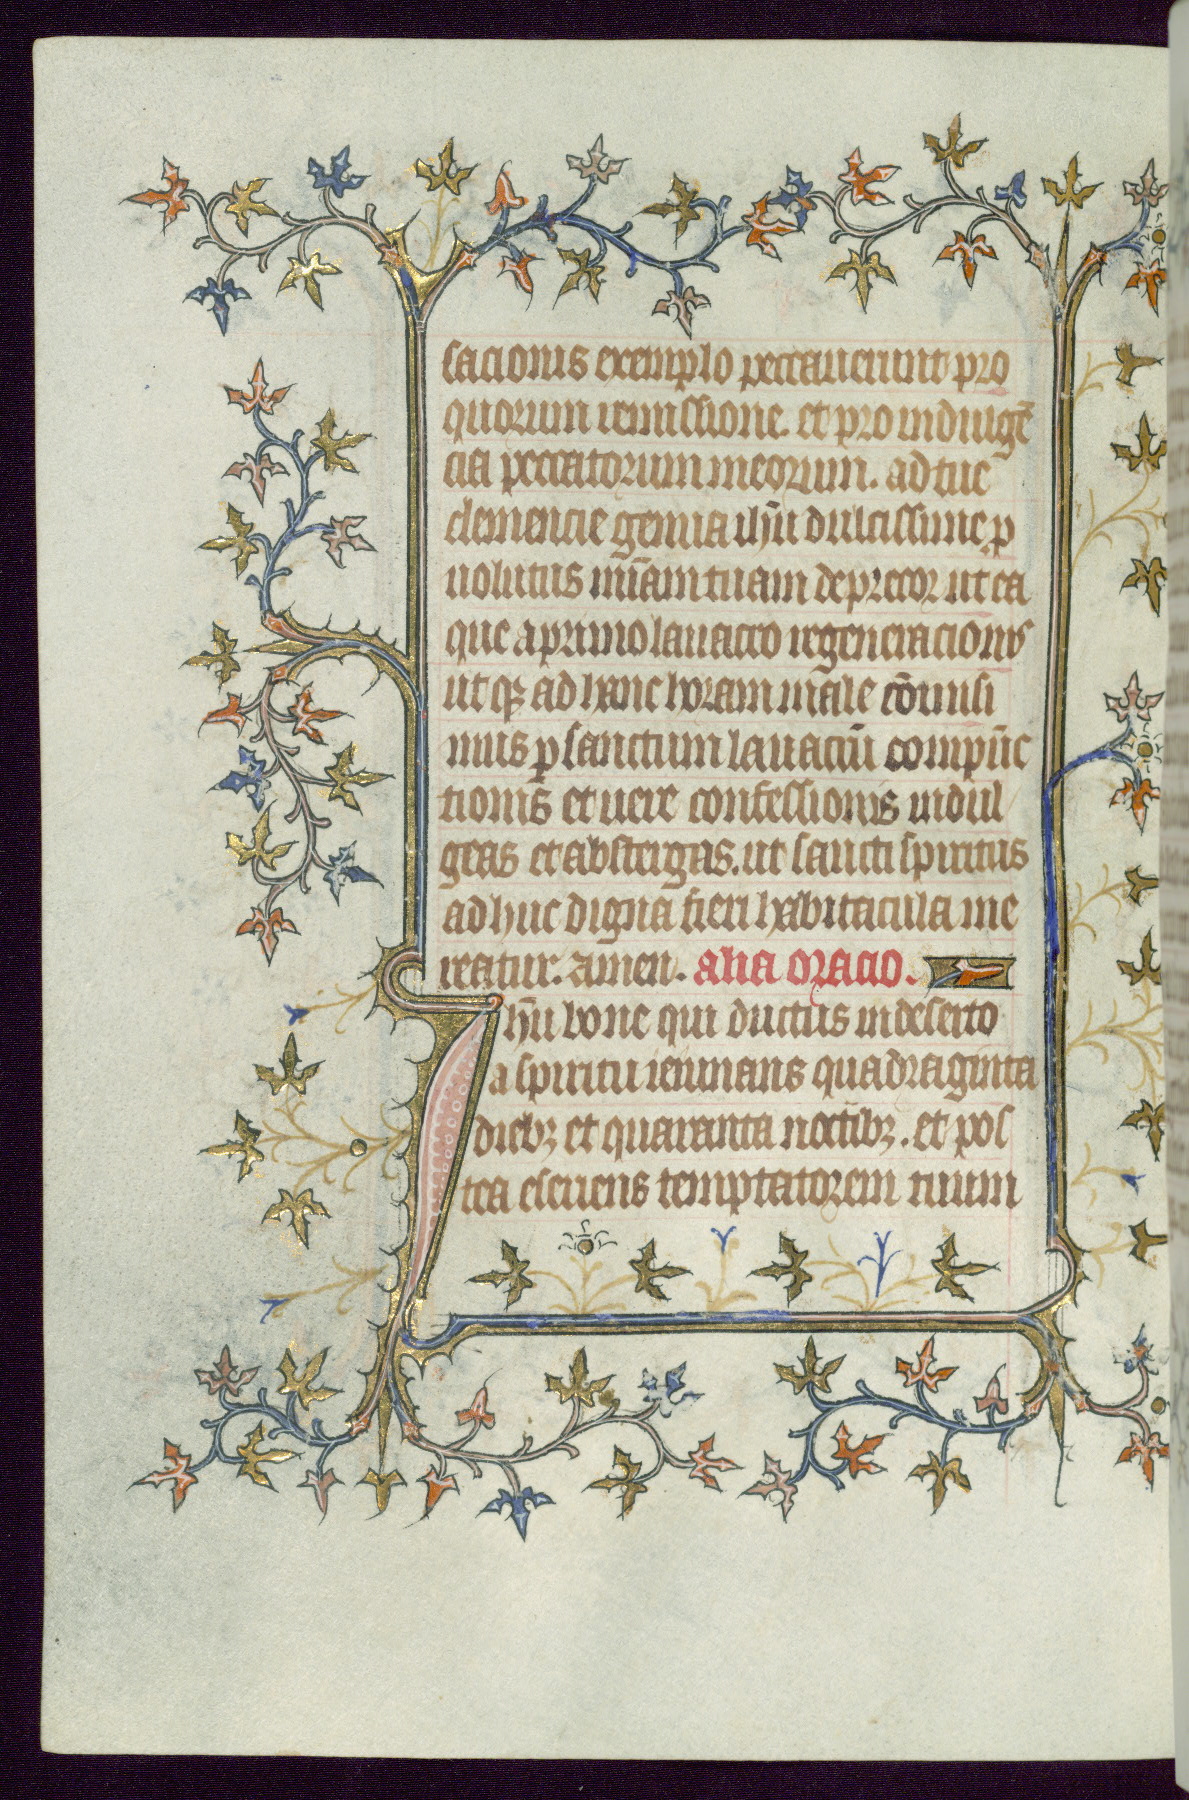 sacionis exemplo peccauerunt pro
quorum remissione. et pro indulgē
cia peccatorum meorum. ad tue
clemencie genua ihū dulcissime p
uolutus mīam tuam deprecor ut ea
que a primo lauacro regeneracionis
ut qȝ ad hanc horam male cōmisi
mus ꝑ sanctum lauacrū compūc
tionis et uere confessionis indul
geas et abstergas. ut sancti spiritus
ad huc digna fieri habitacula me
reatur. amen. alia oracio.
Ihū bone qui ductus in deserto
a spiritu ieiunans quadraginta
diebȝ et quaranta noctibȝ. et pos
tea esuriens temptatorem tuum